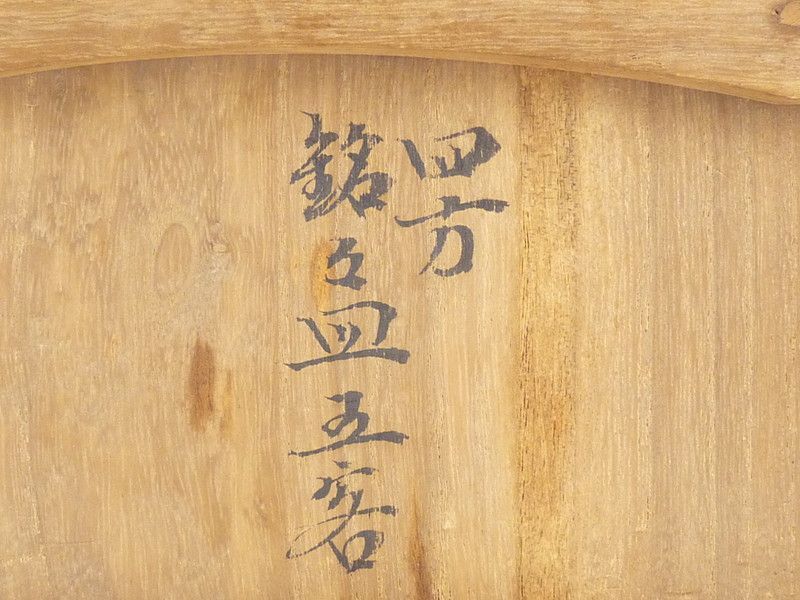 四方
銘々皿五客